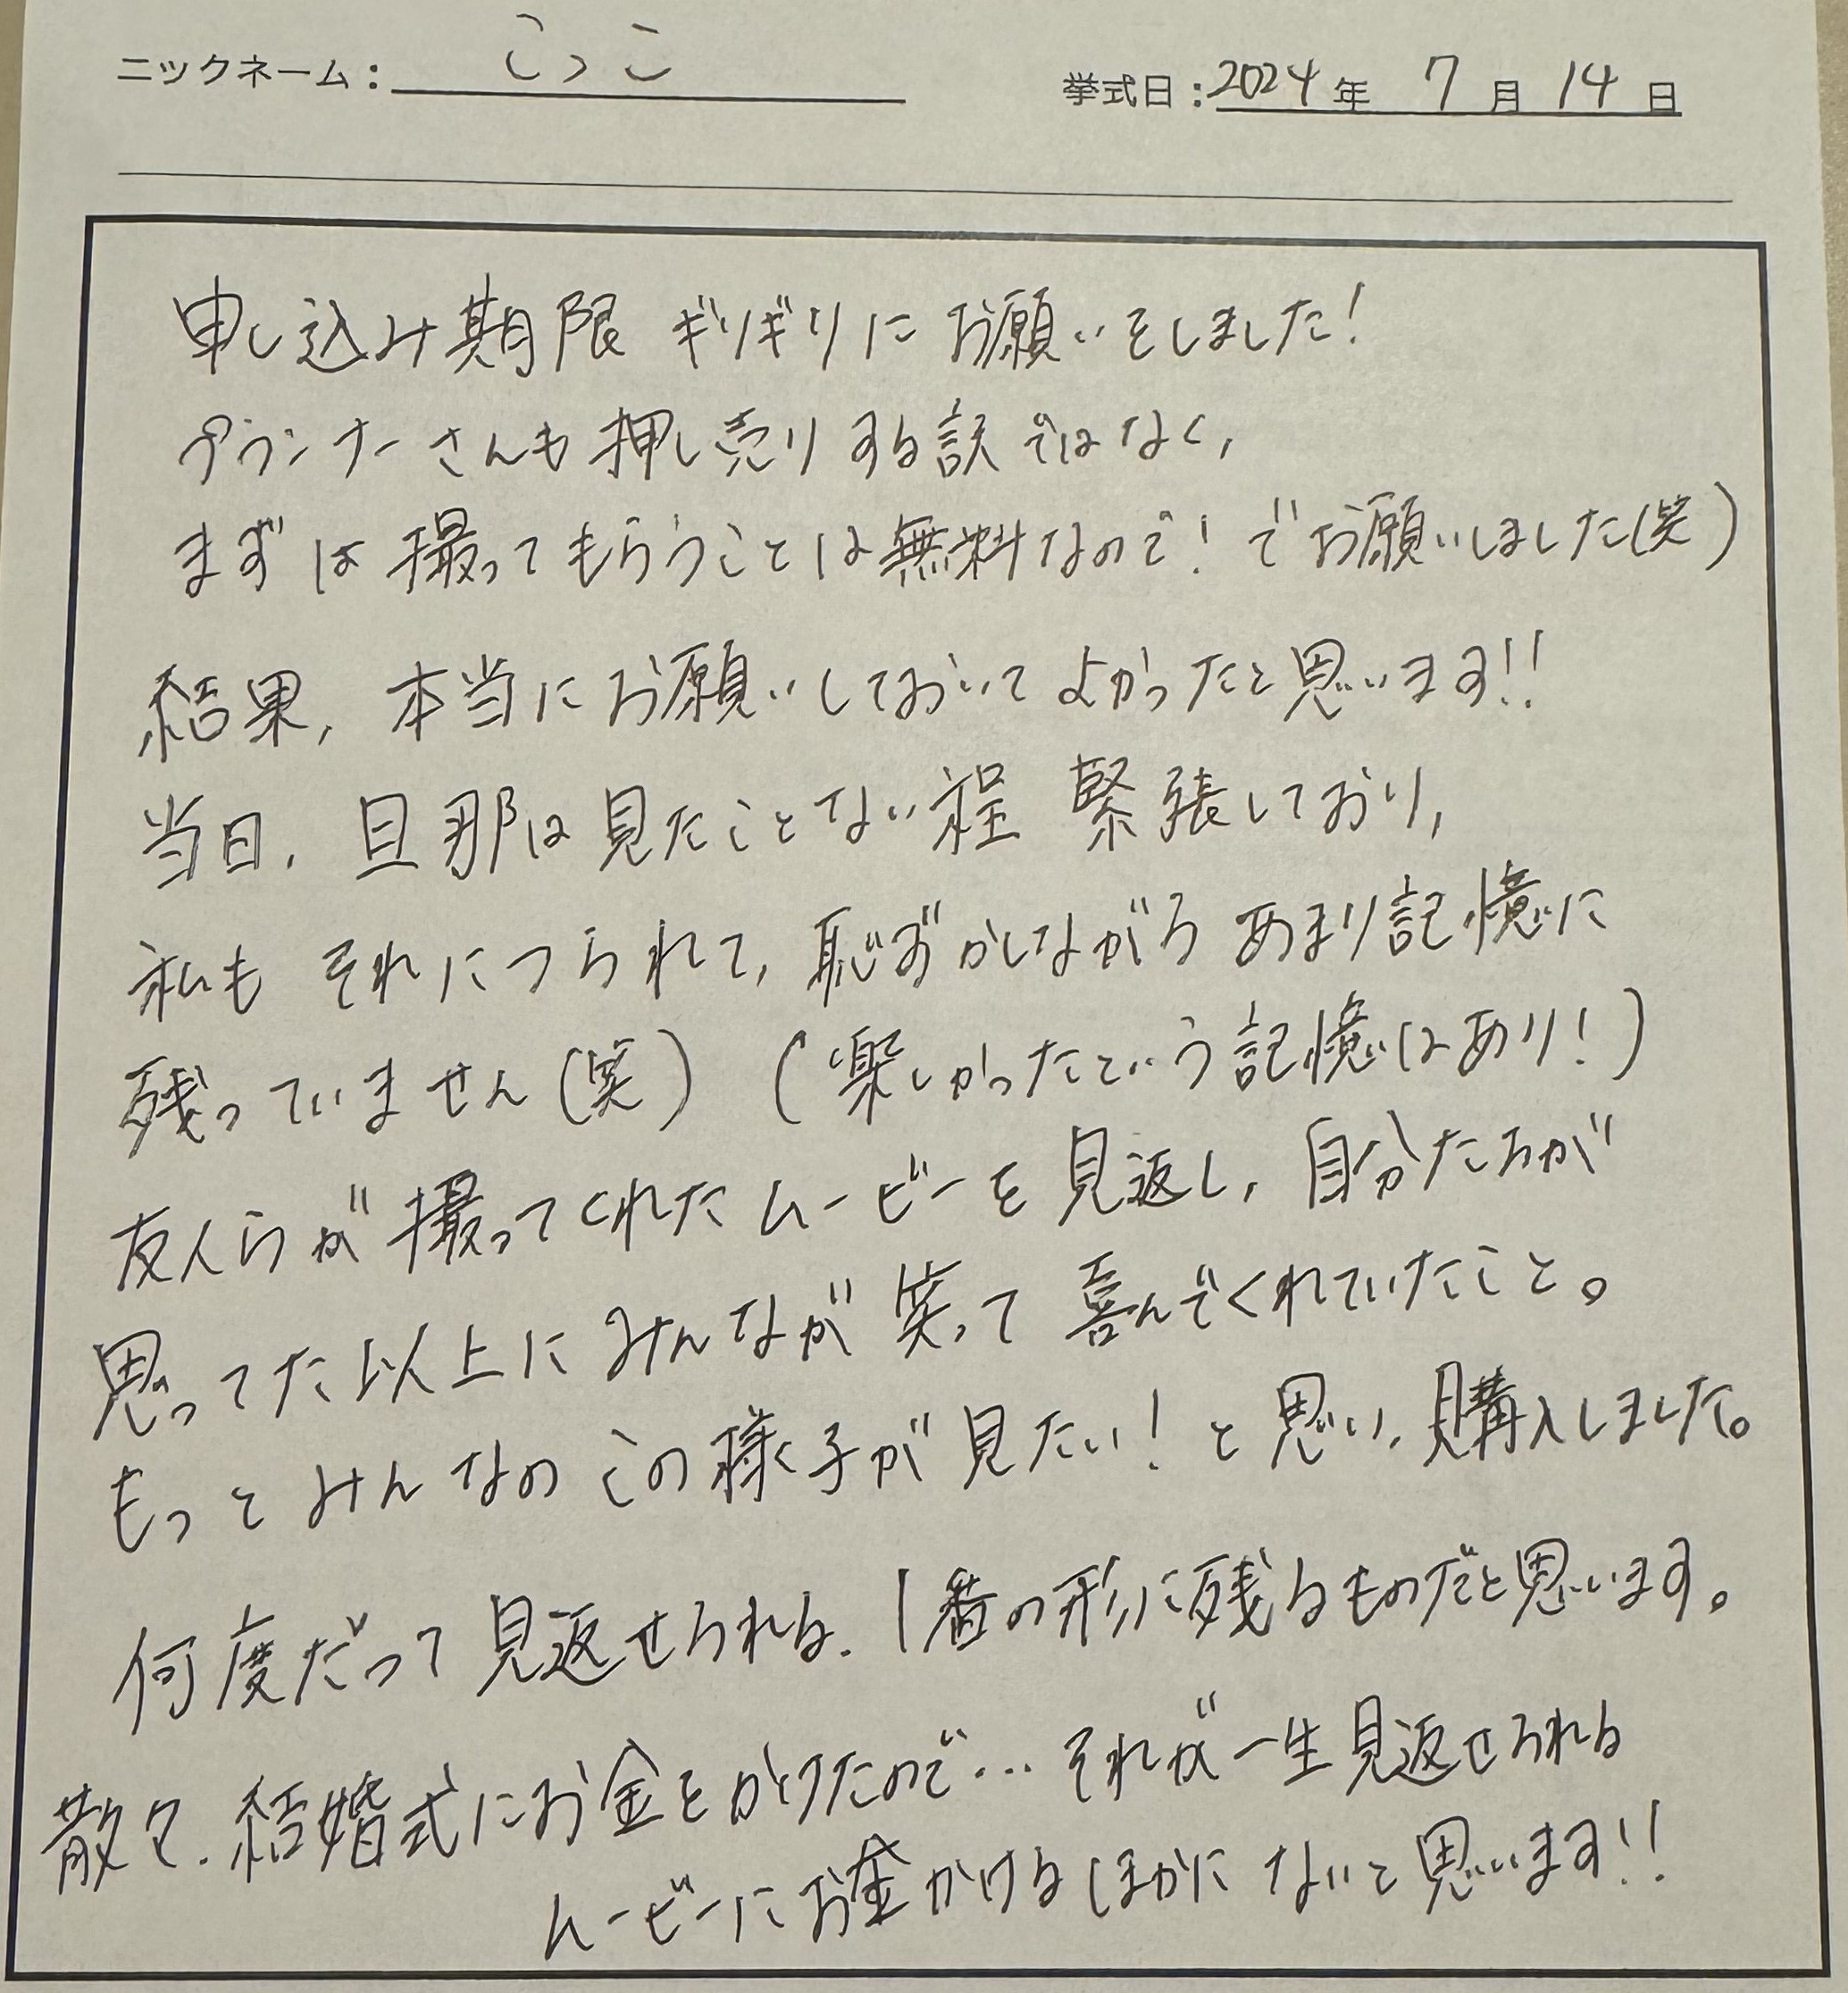 ニックネーム: こっこ 挙式日: 2024年 7月 14日
申し込み期限 ギリギリに お願いをしました!
プランナーさんも押し売りする訳ではなく,
まずは撮ってもらうことは無料なので! でお願いしました(笑)
結果, 本当にお願いしておいて よかったと思います!!
当日, 旦那は見たことない程 緊張しており,
私も それにつられて, 恥ずかしながら あまり記憶に
残っていません(笑) (楽しかったという記憶はあり!)
友人らが撮ってくれたムービーを見返し, 自分たちが
思ってた以上にみんなが笑って喜んでくれていたこと。
もっとみんなのこの様子が見たい! と思い, 購入しました。
何度だって見返せられる. 1番の形に残るものだと思います。
散々, 結婚式にお金をかけたので… それが一生見返せられる
ムービーにお金かけるほかにないと思います!!